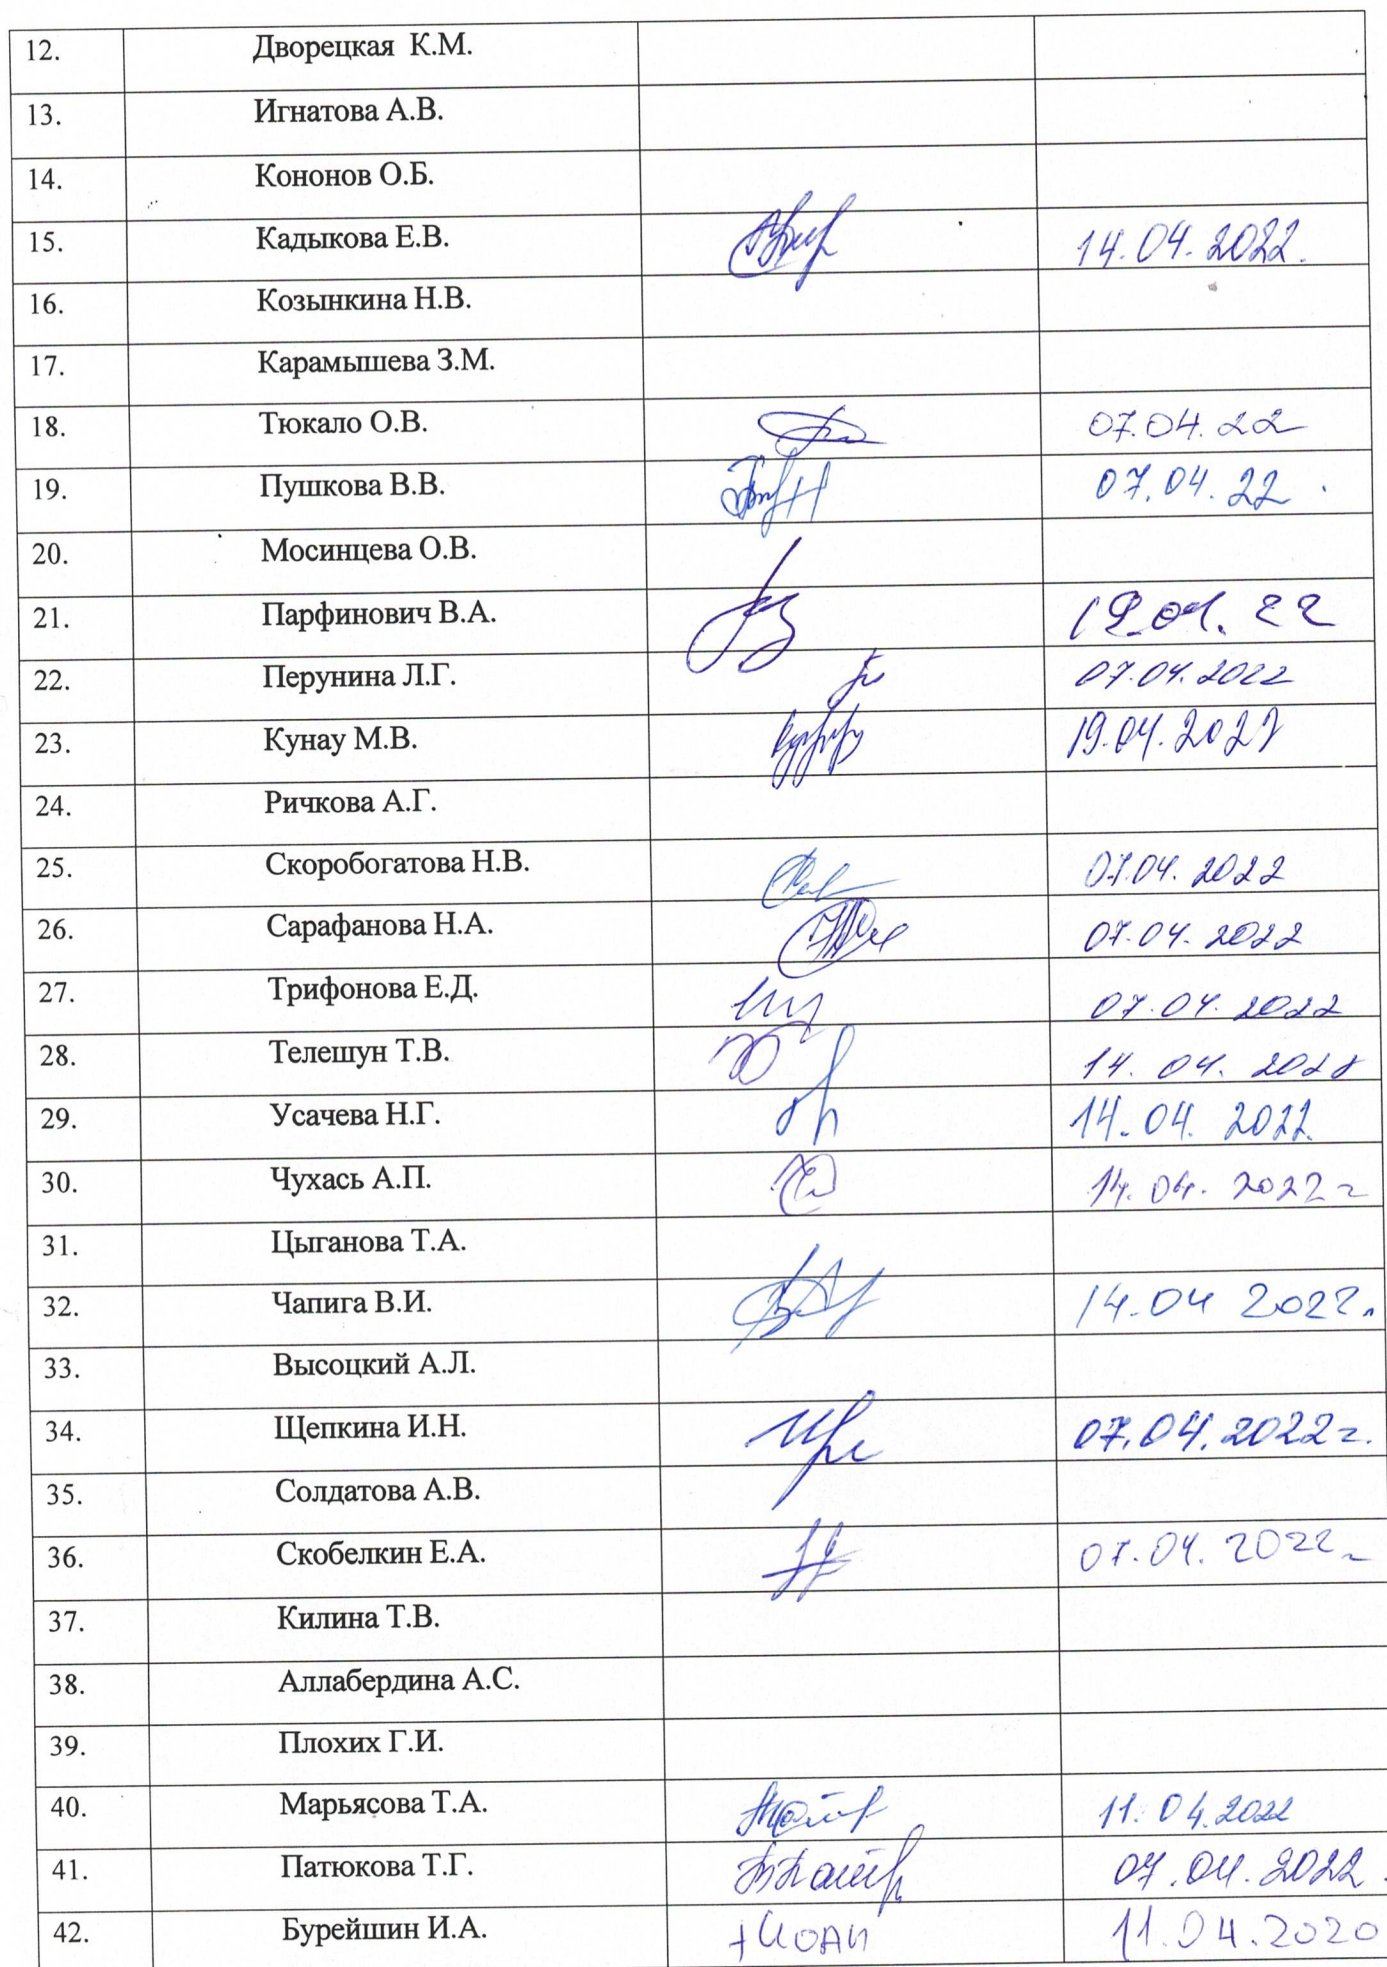 12. Дворецкая К.М.
13. Игнатова А.В.
14. Кононов О.Б.
15. Кадыкова Е.В. 14.04.2022.
16. Козынкина Н.В.
17. Карамышева З.М.
18. Тюкало О.В. 07.04.22
19. Пушкова В.В. 07.04.22
20. Мосинцева О.В.
21. Парфинович В.А.
22. Перунина Л.Г. 07.04.2022
23. Кунау М.В. 19.04.2022
24. Ричкова А.Г.
25. Скоробогатова Н.В. 07.04.2022
26. Сарафанова Н.А. 07.04.2022
27. Трифонова Е.Д. 07.04.2022
28. Телешун Т.В. 14.04.2022
29. Усачева Н.Г. 14.04.2022
30. Чухась А.П. 14.04.2022г
31. Цыганова Т.А.
32. Чапига В.И. 14.04 2022г.
33. Высоцкий А.Л.
34. Щепкина И.Н. 07.04.2022г.
35. Солдатова А.В.
36. Скобелкин Е.А. 07.04.2022г
37. Килина Т.В.
38. Аллабердина А.С.
39. Плохих Г.И.
40. Марьясова Т.А. 11.04.2022
41. Патюкова Т.Г. 07.04.2022.
42. Бурейшин И.А. 11.04.2020